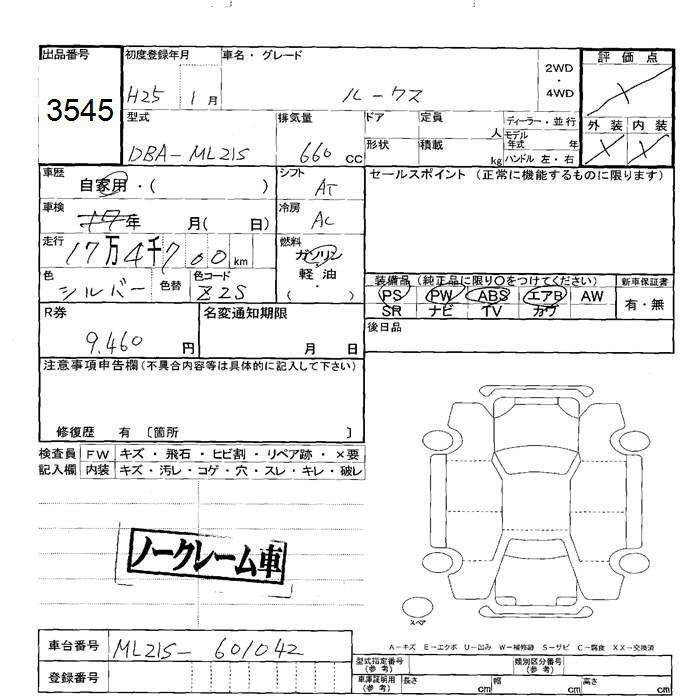 出品番号 初度登録年月 車名・グレード 2WD・4WD 評価点
3545 H25 1月 ルークス
外装 内装
型式 排気量 ドア 定員 人 ディーラー・並行
DBA-ML21S 660 CC 形状 積載 kg モデル年式 年
ハンドル 左・右
車歴 自家用・( ) シフト AT セールスポイント (正常に機能するものに限ります)
車検 年 月( 日) 冷房 AC
走行 17万4千700km 燃料 ガソリン
軽油
・
( )
色 シルバー 色替 色コード Z2S
装備品 (純正品に限り〇をつけてください) 新車保証書
PS PW ABS エアB AW 有・無
SR ナビ TV カワ
R券 9,460円 名変通知期限 月 日 後日品
注意事項申告欄(不具合内容等は具体的に記入して下さい)
修復歴 有 〔箇所 〕
検査員 FW キズ・飛石・ヒビ割・リペア跡・×要
記入欄 内装 キズ・汚レ・コゲ・穴・スレ・キレ・破レ
ノークレーム車
スペア
A－キズ E－エクボ U－凹み W－補修跡 S－サビ C－腐食 XX－交換済
車台番号 ML21S-601042
登録番号
型式指定番号(参考) 類別区分番号(参考)
車庫証明用(参考) 長さ cm 幅 cm 高さ cm